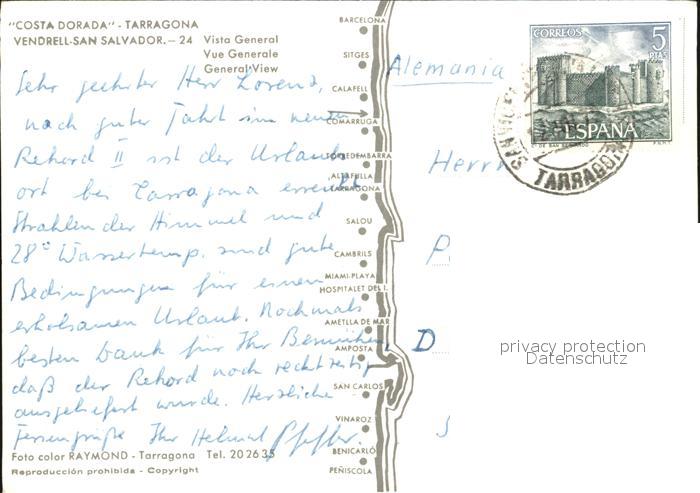 "COSTA DORADA" - TARRAGONA
VENDRELL-SAN SALVADOR. — 24 Vista General
Vue Generale
General View
Sehr geehrter Herr Lorenz,
nach guter Fahrt im neuen
Rekord II ist der Urlaubs
ort bei Tarragona erreicht
Strahlender Himmel und
28° Wassertemp. sind gute
Bedingungen für einen
erholsamen Urlaub. Nochmals
besten Dank für Ihr Bemühen,
daß der Rekord noch rechtzeitig
ausgeliefert wurde. Herzliche
Feriengrüße Ihr Helmut Pfeffer.
Foto color RAYMOND - Tarragona Tel. 20 26 35
Reproducción prohibida - Copyright
BARCELONA
SITGES
CALAFELL
COMARRUGA
TORREDEMBARRA
ALTAFULLA
TARRAGONA
SALOU
CAMBRILS
MIAMI-PLAYA
HOSPITALET DEL I.
AMETLLA DE MAR
AMPOSTA
SAN CARLOS
VINAROZ
BENICARLÓ
PEÑISCOLA
Alemania
Herrn
P
D
CORREOS 5 PTAS
ESPAÑA
TARRAGONA
privacy protection
Datenschutz